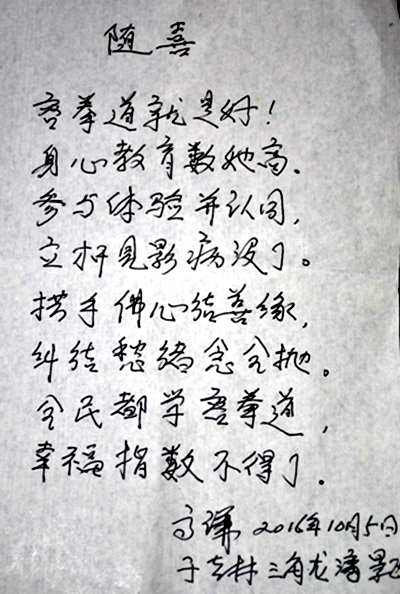 随喜
唐拳道就是好!
身心教育数她高、
参与体验并认同,
立杆见影病没了。
拱手佛心结善缘,
纠结愁绪念全抛。
全民都学唐拳道,
幸福指数不得了.
2016年10月5日
于吉林三角龙湾景